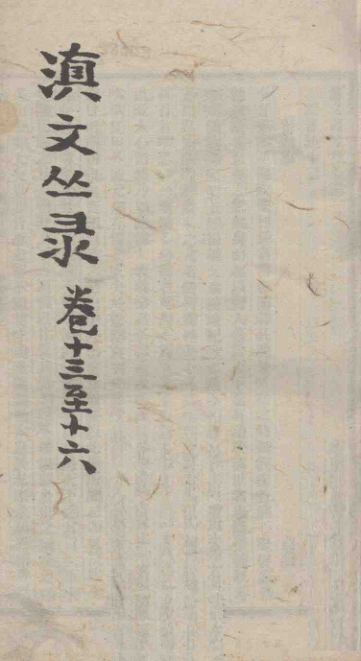 滇文丛录
卷十三至十六